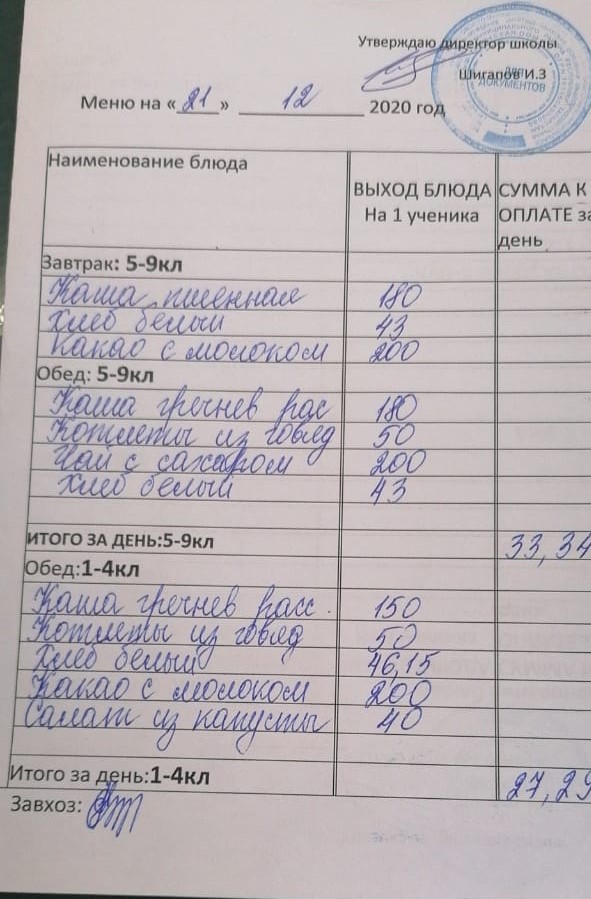 Утверждаю директор школы
Шигапов И.З
ДЛЯ
ДОКУМЕНТОВ
Меню на «21» 12 2020 год
Наименование блюда
ВЫХОД БЛЮДА СУММА К
На 1 ученика ОПЛАТЕ за
день
Завтрак: 5-9кл
Каша пшенная 180
Хлеб белый 43
Какао с молоком 200
Обед: 5-9кл
Каша гречнев рас 180
Котлеты из говяд 50
Чай с сахаром 200
Хлеб белый 43
ИТОГО ЗА ДЕНЬ:5-9кл 33,34
Обед:1-4кл
Каша гречнев расс. 150
Котлеты из говяд 50
Хлеб белый 46,15
Какао с молоком 200
Салат из капусты 40
Итого за день:1-4кл 27,29
Завхоз: